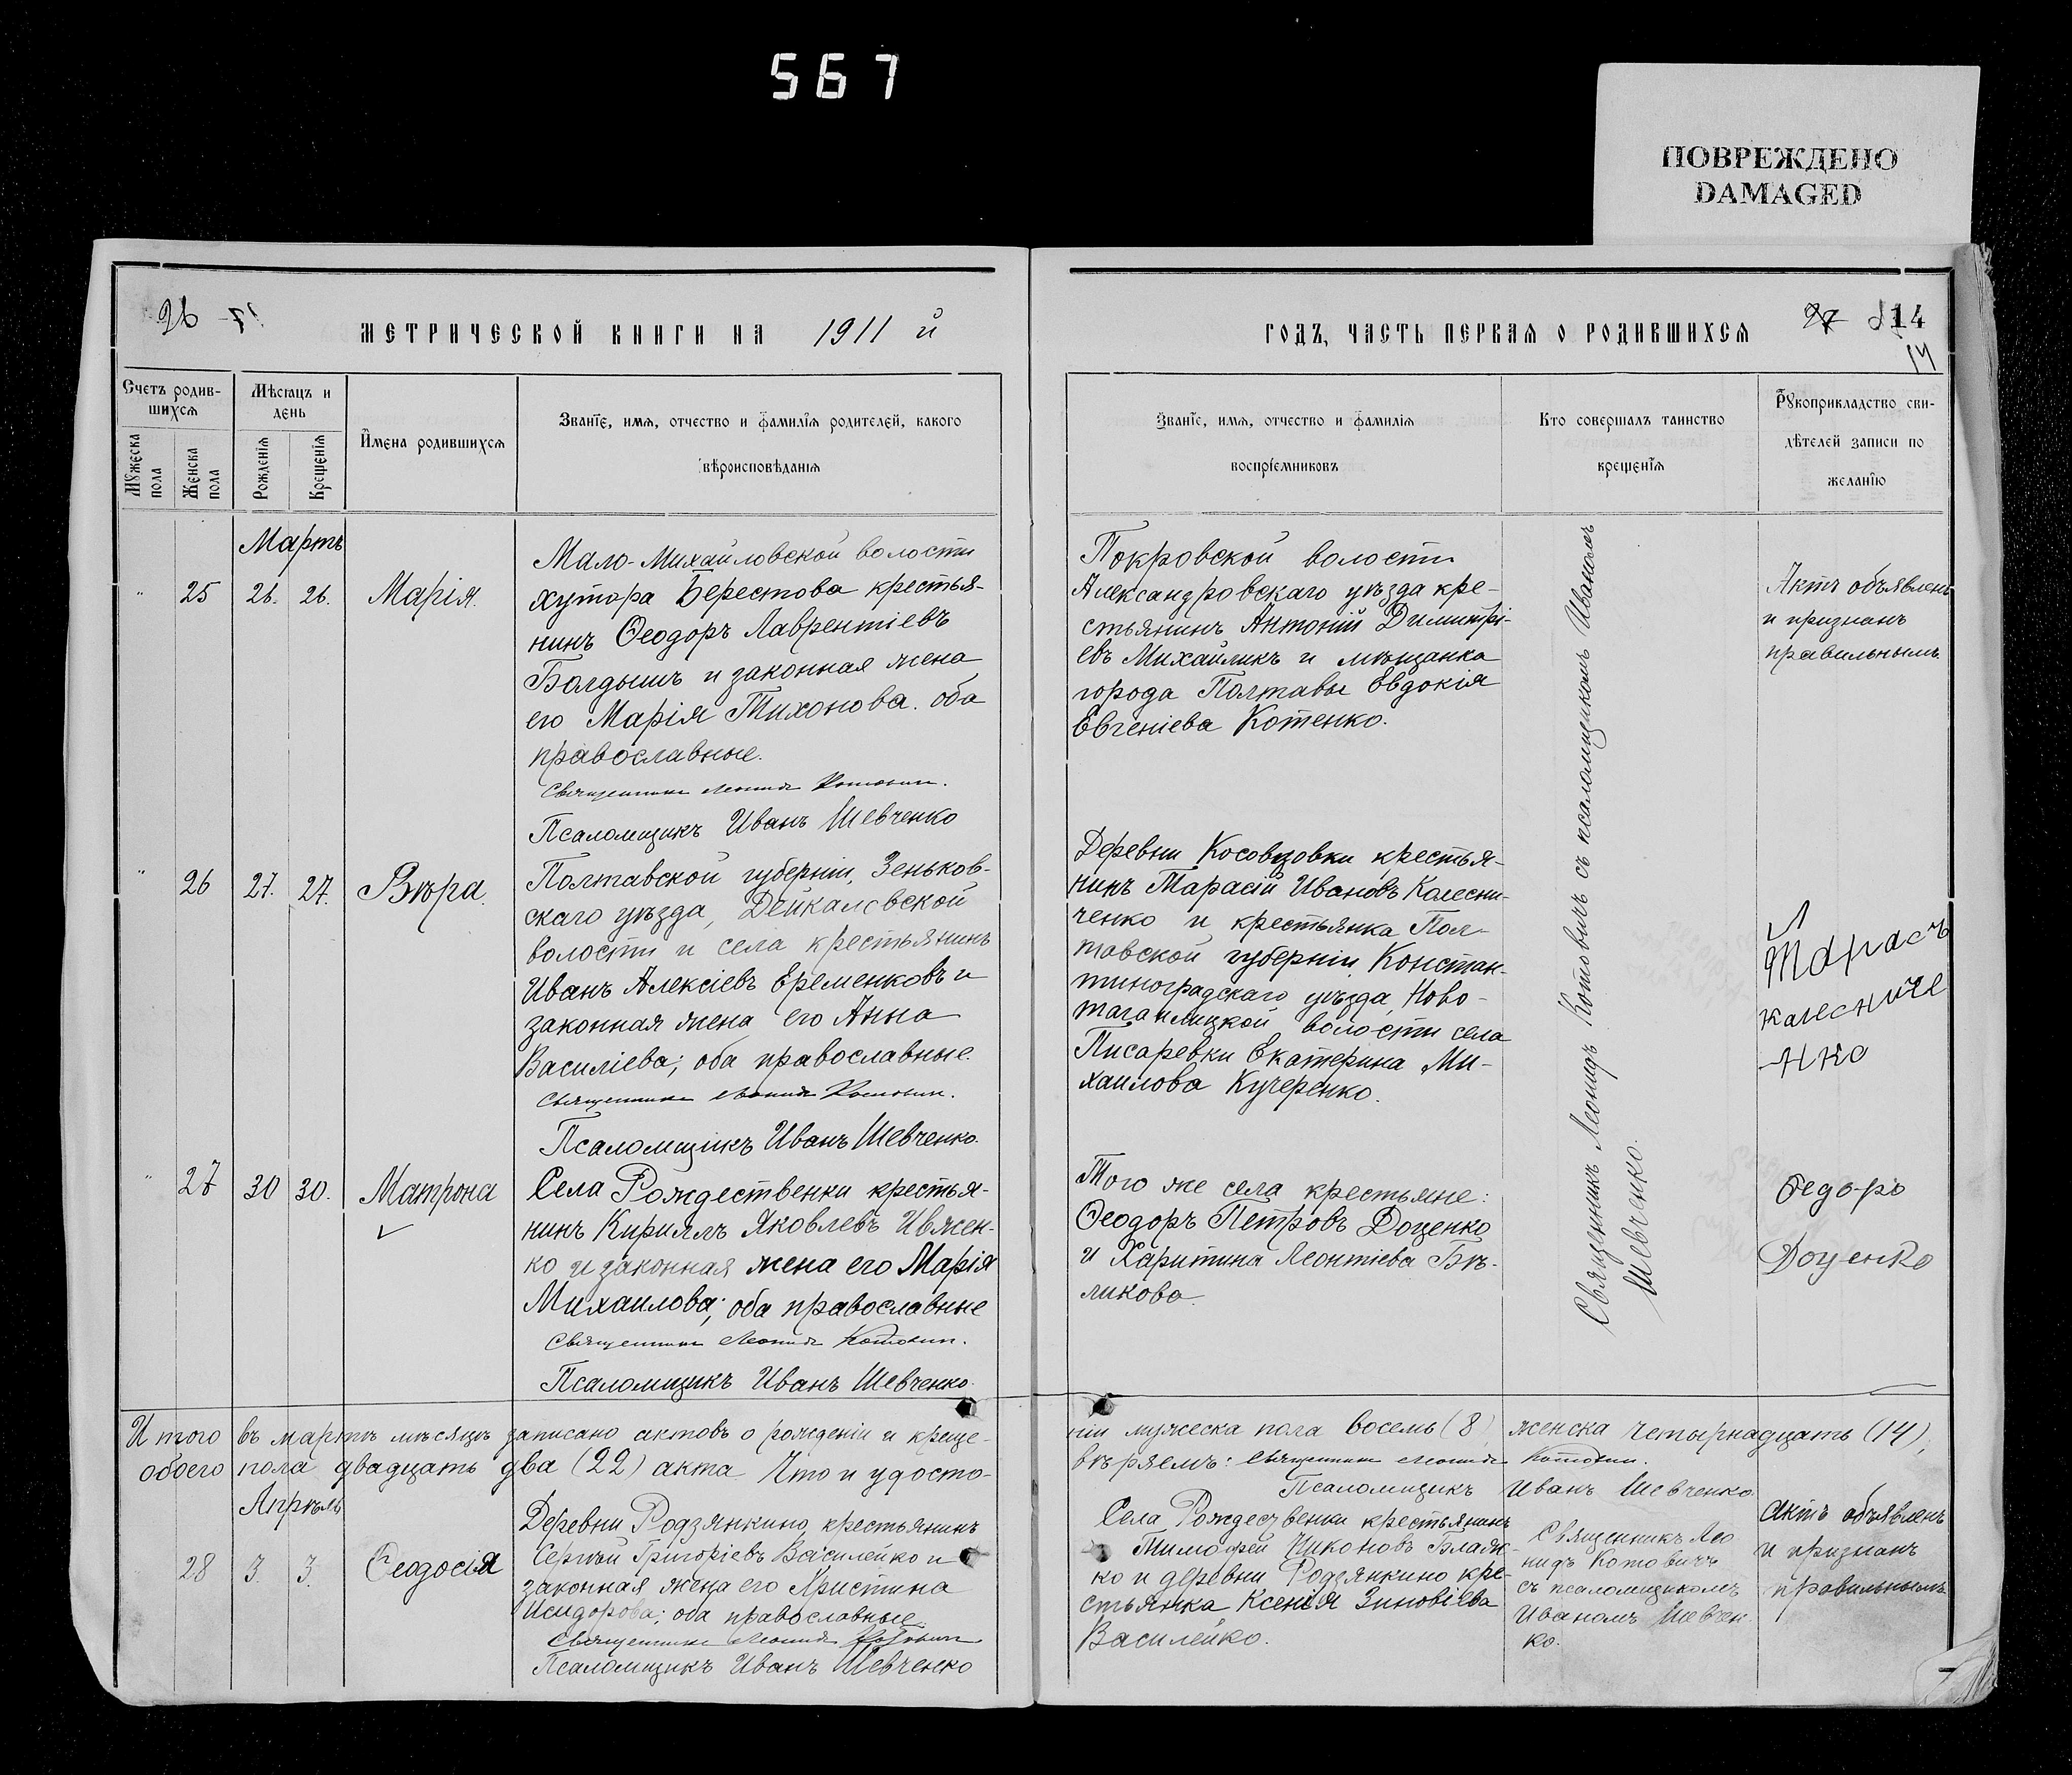 567
ПОВРЕЖДЕНО
DAMAGED
26
МЕТРИЧЕСКОЙ КНИГИ НА 1911 й
Счетъ родив-
шихся
Мужеска
пола
Женска
пола
Мѣсяцъ и
день
Рожденія
Крещенія
Имена родившихся
Званіе, имя, отчество и фамилія родителей, какого
вѣроисповѣданія
Мартъ
" 25 26. 26. Марія.
Мало-Михайловской волости
хутора Берестова крестья-
нинъ Ѳеодоръ Лаврентіевъ
Болдышъ и законная жена
его Марія Тихонова. оба
православные.
Священникъ Леонидъ Котовичъ.
Псаломщикъ Иванъ Шевченко
" 26 27. 27. Вѣра.
Полтавской губерніи, Зеньков-
скаго уѣзда, Дейкаловской
волости и села крестьянинъ
Иванъ Алексіевъ Еременковъ и
законная жена его Анна
Василіева; оба православные.
Священникъ Леонидъ Котовичъ.
Псаломщикъ Иванъ Шевченко.
" 27 30 30. Матрона
Села Рождественки крестья-
нинъ Кириллъ Яковлевъ Ивжен-
ко и законная жена его Марія
Михаилова; оба православные
Священникъ Леонидъ Котовичъ.
Псаломщикъ Иванъ Шевченко.
Итого въ мартѣ мѣсяцѣ записано актовъ о рожденіи и креще-
обоего пола двадцать два (22) акта Что и удосто-
Апрѣль
28 3. 3. Ѳеодосія
Деревни Родзянкино крестьянинъ
Сергѣй Григоріевъ Василейко и
законная жена его Христина
Исидорова; оба православные
Священникъ Леонидъ Котовичъ
Псаломщикъ Иванъ Шевченко
ГОДЪ, ЧАСТЬ ПЕРВАЯ О РОДИВШИХСЯ
27 14
14
Званіе, имя, отчество и фамилія
воспріемниковъ
Кто совершалъ таинство
крещенія
Рукоприкладство сви-
дѣтелей записи по
желанію
Покровской волости
Александровскаго уѣзда кре-
стьянинъ Антоній Димитрі-
евъ Михайликъ и мѣщанка
города Полтавы Евдокія
Евгеніева Котенко.
Актъ объявленъ
и признанъ
правильнымъ.
Деревни Косовцовки крестья-
нинъ Тарасій Ивановъ Колесни-
ченко и крестьянка Пол-
тавской губерніи Констан-
тиноградскаго уѣзда, Ново-
тагамлицкой волости села
Писаревки Екатерина Ми-
хаилова Кучеренко.
Тарасъ
калесниче
-нко
Того же села крестьяне:
Ѳеодоръ Петровъ Доценко
и Харитина Леонтіева Бѣ-
ликова.
Ѳедоръ
Доценко
Священникъ Леонидъ Котовичъ съ псаломщикомъ Иваномъ
Шевченко.
ніи мужеска пола восемь (8), женска четырнадцать (14),
вѣряемъ: Священникъ Леонидъ Котовичъ.
Псаломщикъ Иванъ Шевченко.
Села Рождественки крестьянинъ
Тимофей Никоновъ Блаж-
ко и деревни Родзянкино кре-
стьянка Ксенія Зиновіева
Василейко.
Священникъ Лео
нидъ Котовичъ
съ псаломщикомъ
Иваномъ Шевчен
ко.
Актъ объявленъ
и признанъ
правильнымъ